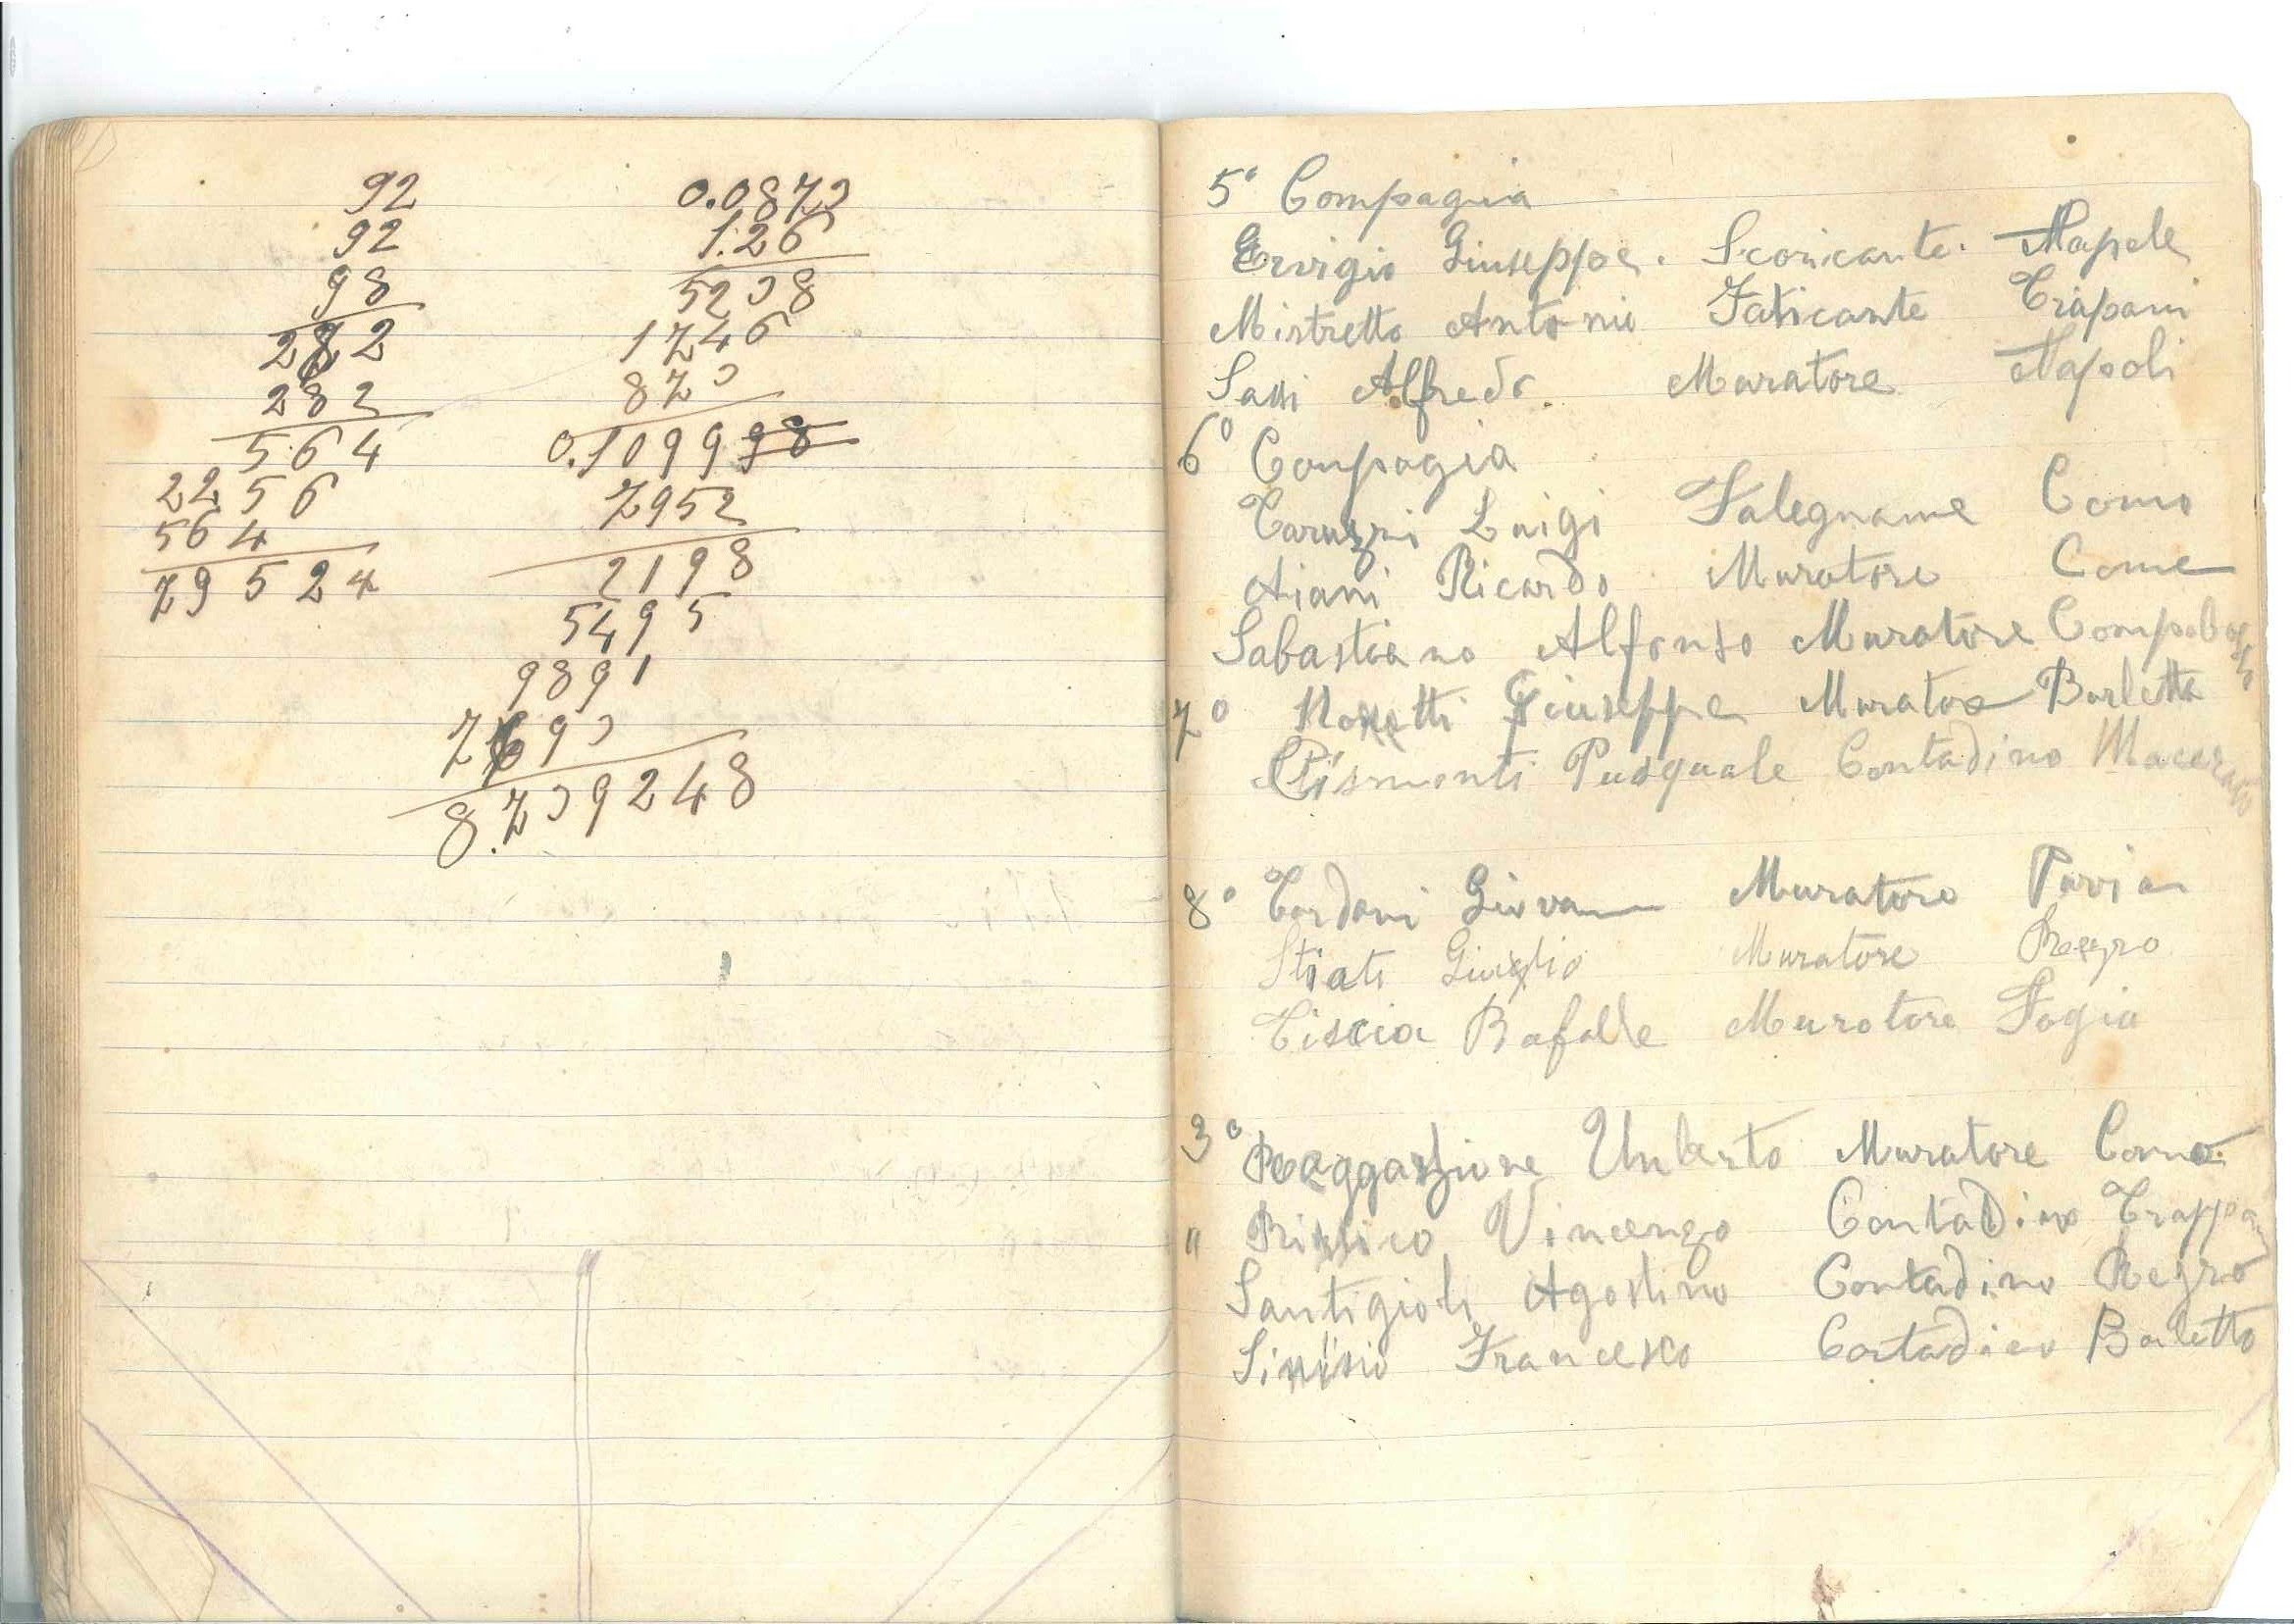 92
92
98
282
282
564
2256
564
79524
0.0873
1.26
5238
1746
873
0.109998
7952
2198
5495
9891
7693
8.739248
5ª Compagnia
Ervigio Giuseppe. Scaricante. Napole
Mistretto Antonio Faticante Trapani
Sassi Alfredo. Muratore Napoli
6º Compagia
Luigi Falegname Como
Aiani Ricardo Muratore Come
Sabastiano Alfonso Muratore
7º Giuseppe Muratore Barletta
Pasquale Contadino Macerato
8º Tordani Giovan Muratore Pavia
Stiati Muratore
Tiscia Rafalle Muratore Fogia
3º Umberto Muratore Como
" Vincenzo Contadino Trappani
Santigioli Agostino Contadino
Sinisio Francesco Contadino Barletto